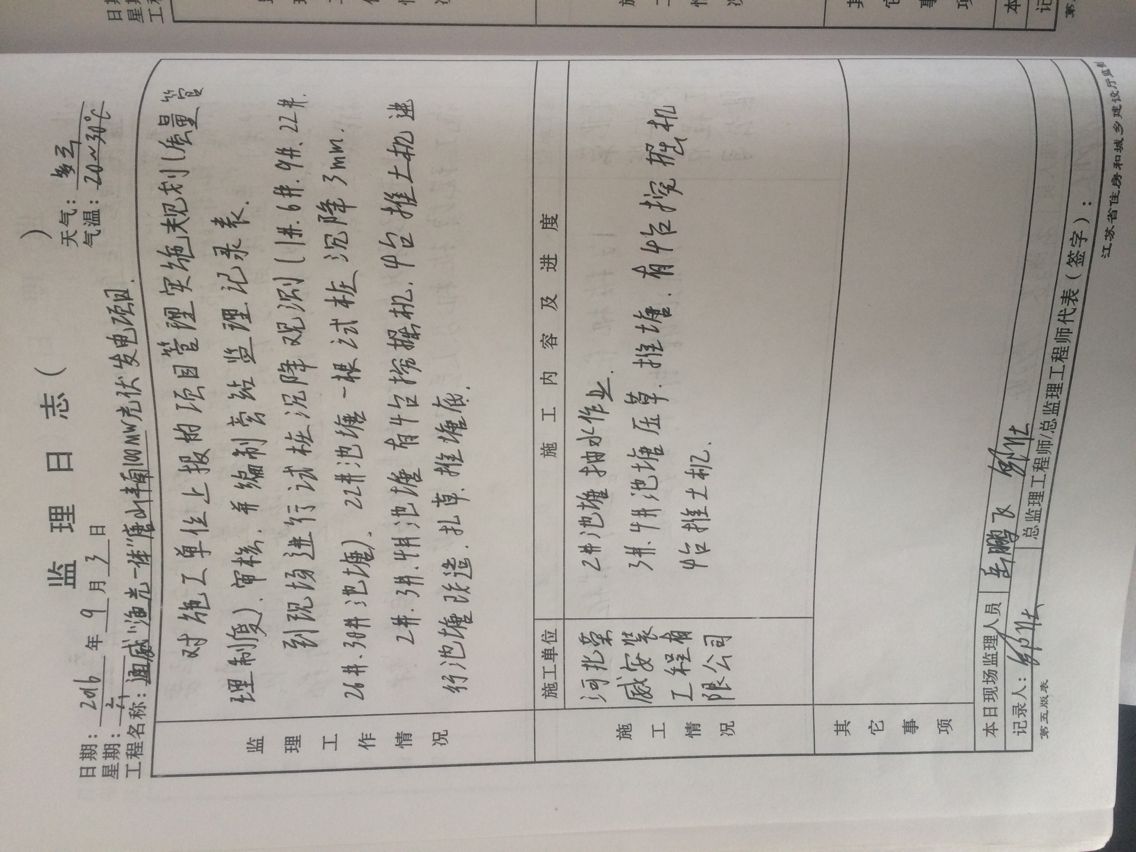 监理日志（ ）
日期：2016年9月3日 天气：多云
星期：六 气温：20~30℃
工程名称：通威"渔光一体"唐山丰南100MW光伏发电项目.
监理工作情况
对施工单位上报的项目管理实施规划(质量管
理制度)、审核.并编制旁站监理记录表.
到现场进行试桩沉降观测(1#.6#.9#.22#.
26#.30#池塘). 22#池塘一根试桩沉降3mm.
2#.3#.4#池塘有4台挖掘机.4台推土机进
行池塘改造.扎草.推塘底.
施工情况
施工单位 施工内容及进度
河北荣
威安装
工程有
限公司
2#池塘抽水作业.
3#.4#池塘压草.推塘.有4台挖掘机
4台推土机.
其它事项
本日现场监理人员 岳鹏飞
记录人： 总监理工程师/总监理工程师代表（签字）：
第五版表 江苏省住房和城乡建设厅监制